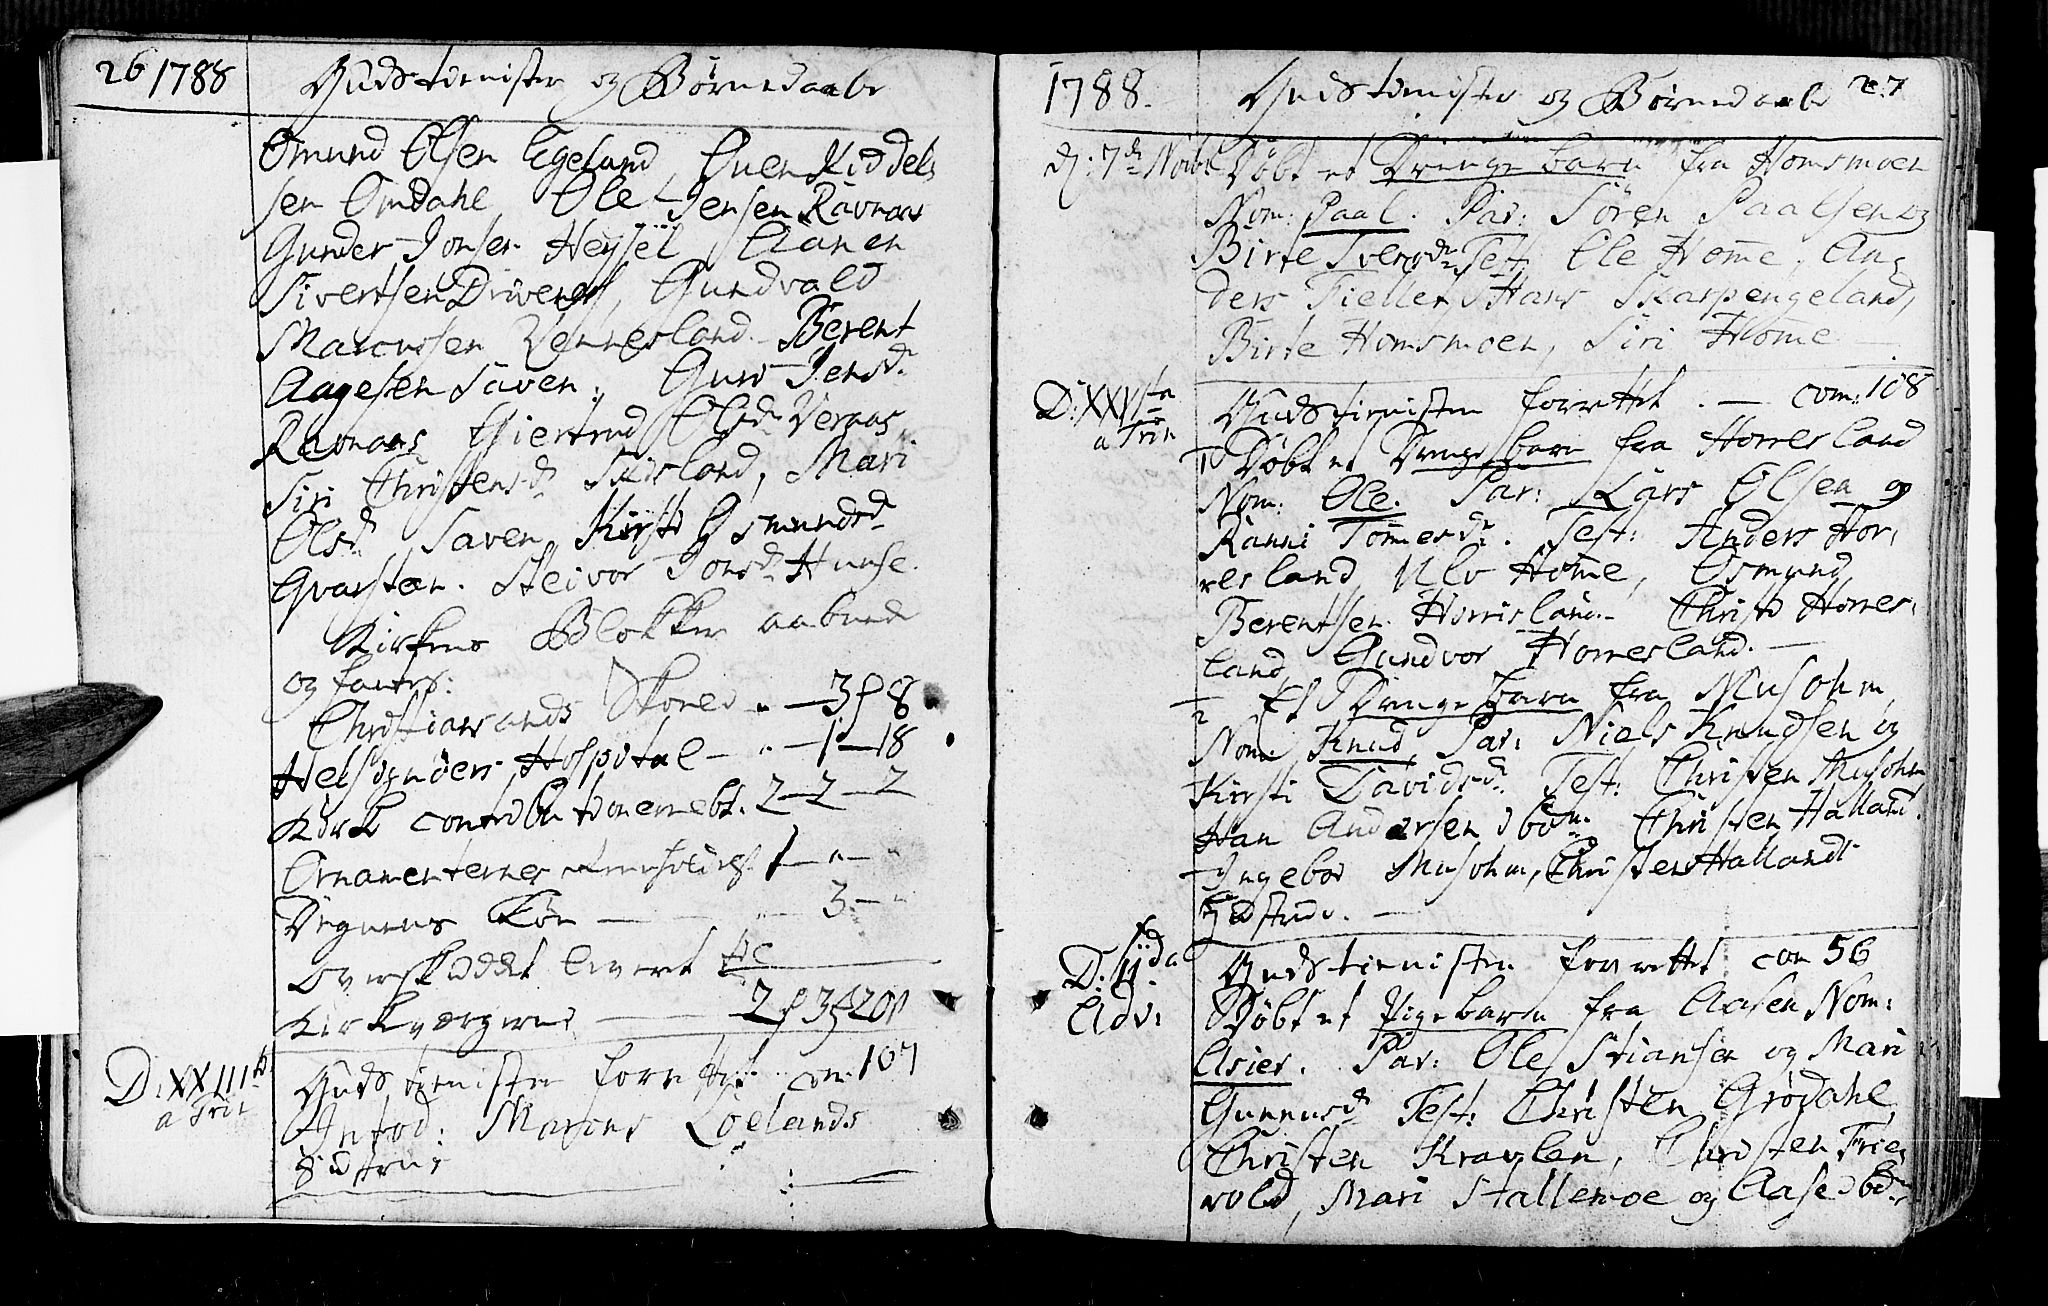 26 1788 Gudstienister og Børnedaabe
Omund Olsen Egeland, Even Kiddels
sen Omdahl Ole Jensen Ravnaas
Gunder Jonsen Heysel, Aanen
Sivertsen Drivenes, Gundvald
Marcussen Vennesland. Berent
Aagesen Saven. Guro Jensdr.
Ravnaas Giertrud Olsdr Veraas,
Siri Christensdr Skisland, Mari
Olsdr Saven Kirsti Gsmundsd
Qvarsten. Steivor Jonsdr Hunse.
Kirkens Blokker aabnede
og fantes:
Christiansands Skoled " — 3 f 8
Helsignøers Hospital — " — 1 — 18
Kirke contributionernebt. 2 — 2 — 2
Ornamenternes 1 — " — "
Degnens Løn — " 3 — "
overskuddet levert
Kirkeværgerne — 2 f 3 f 20 s
D: XXIII
a Trin
Gudstienisten forrettet com. 107
Introd: Marcus Loelands
Hustrue
1788. Gudstienister og Børnedaabe 27
d: 7de Novbr Døbt et Drengebarn fra Homsmoen
Nom: Paal. Par: Søren Paalsen og
Birte Iversdr Test: Ole Home, An¬
ders Fieller, Hans Skarpengeland,
Birte Homsmoen, Siri Home —
D: XXV
a Trin
Gudstienisten forrettet. — com: 108
1 Døbt et Drengebarn fra Horresland
Nom: Ole. Par: Lars Olsen og
Ranni Tomesdr. Test: Anders Hor¬
resland, Ulv Home, Osmund
Berentsen Horrisland — Christi Horres¬
land, Gundvor Horresland. —
2 Et Drengebarn fra Musohm
Nom: Knud Par: Niels Knudsen og
Kirsti Davidsdr. Test: Christen Musohm
Han Andersen ibdm. Christen Halland.
Ingebor Musohm, Christen Hallands
Hustrue. —
D: II da
Adv:
Gudstienisten forrettet com 56
Døbt et Pigebarn fra Aasen Nom:
Asier. Par: Ole Stiansen og Mari
Gunnusdr Test: Christen Grødahl,
Christen Kravlen, Christen Trie¬
vold, Mari Stallemoe og Aase ibdm